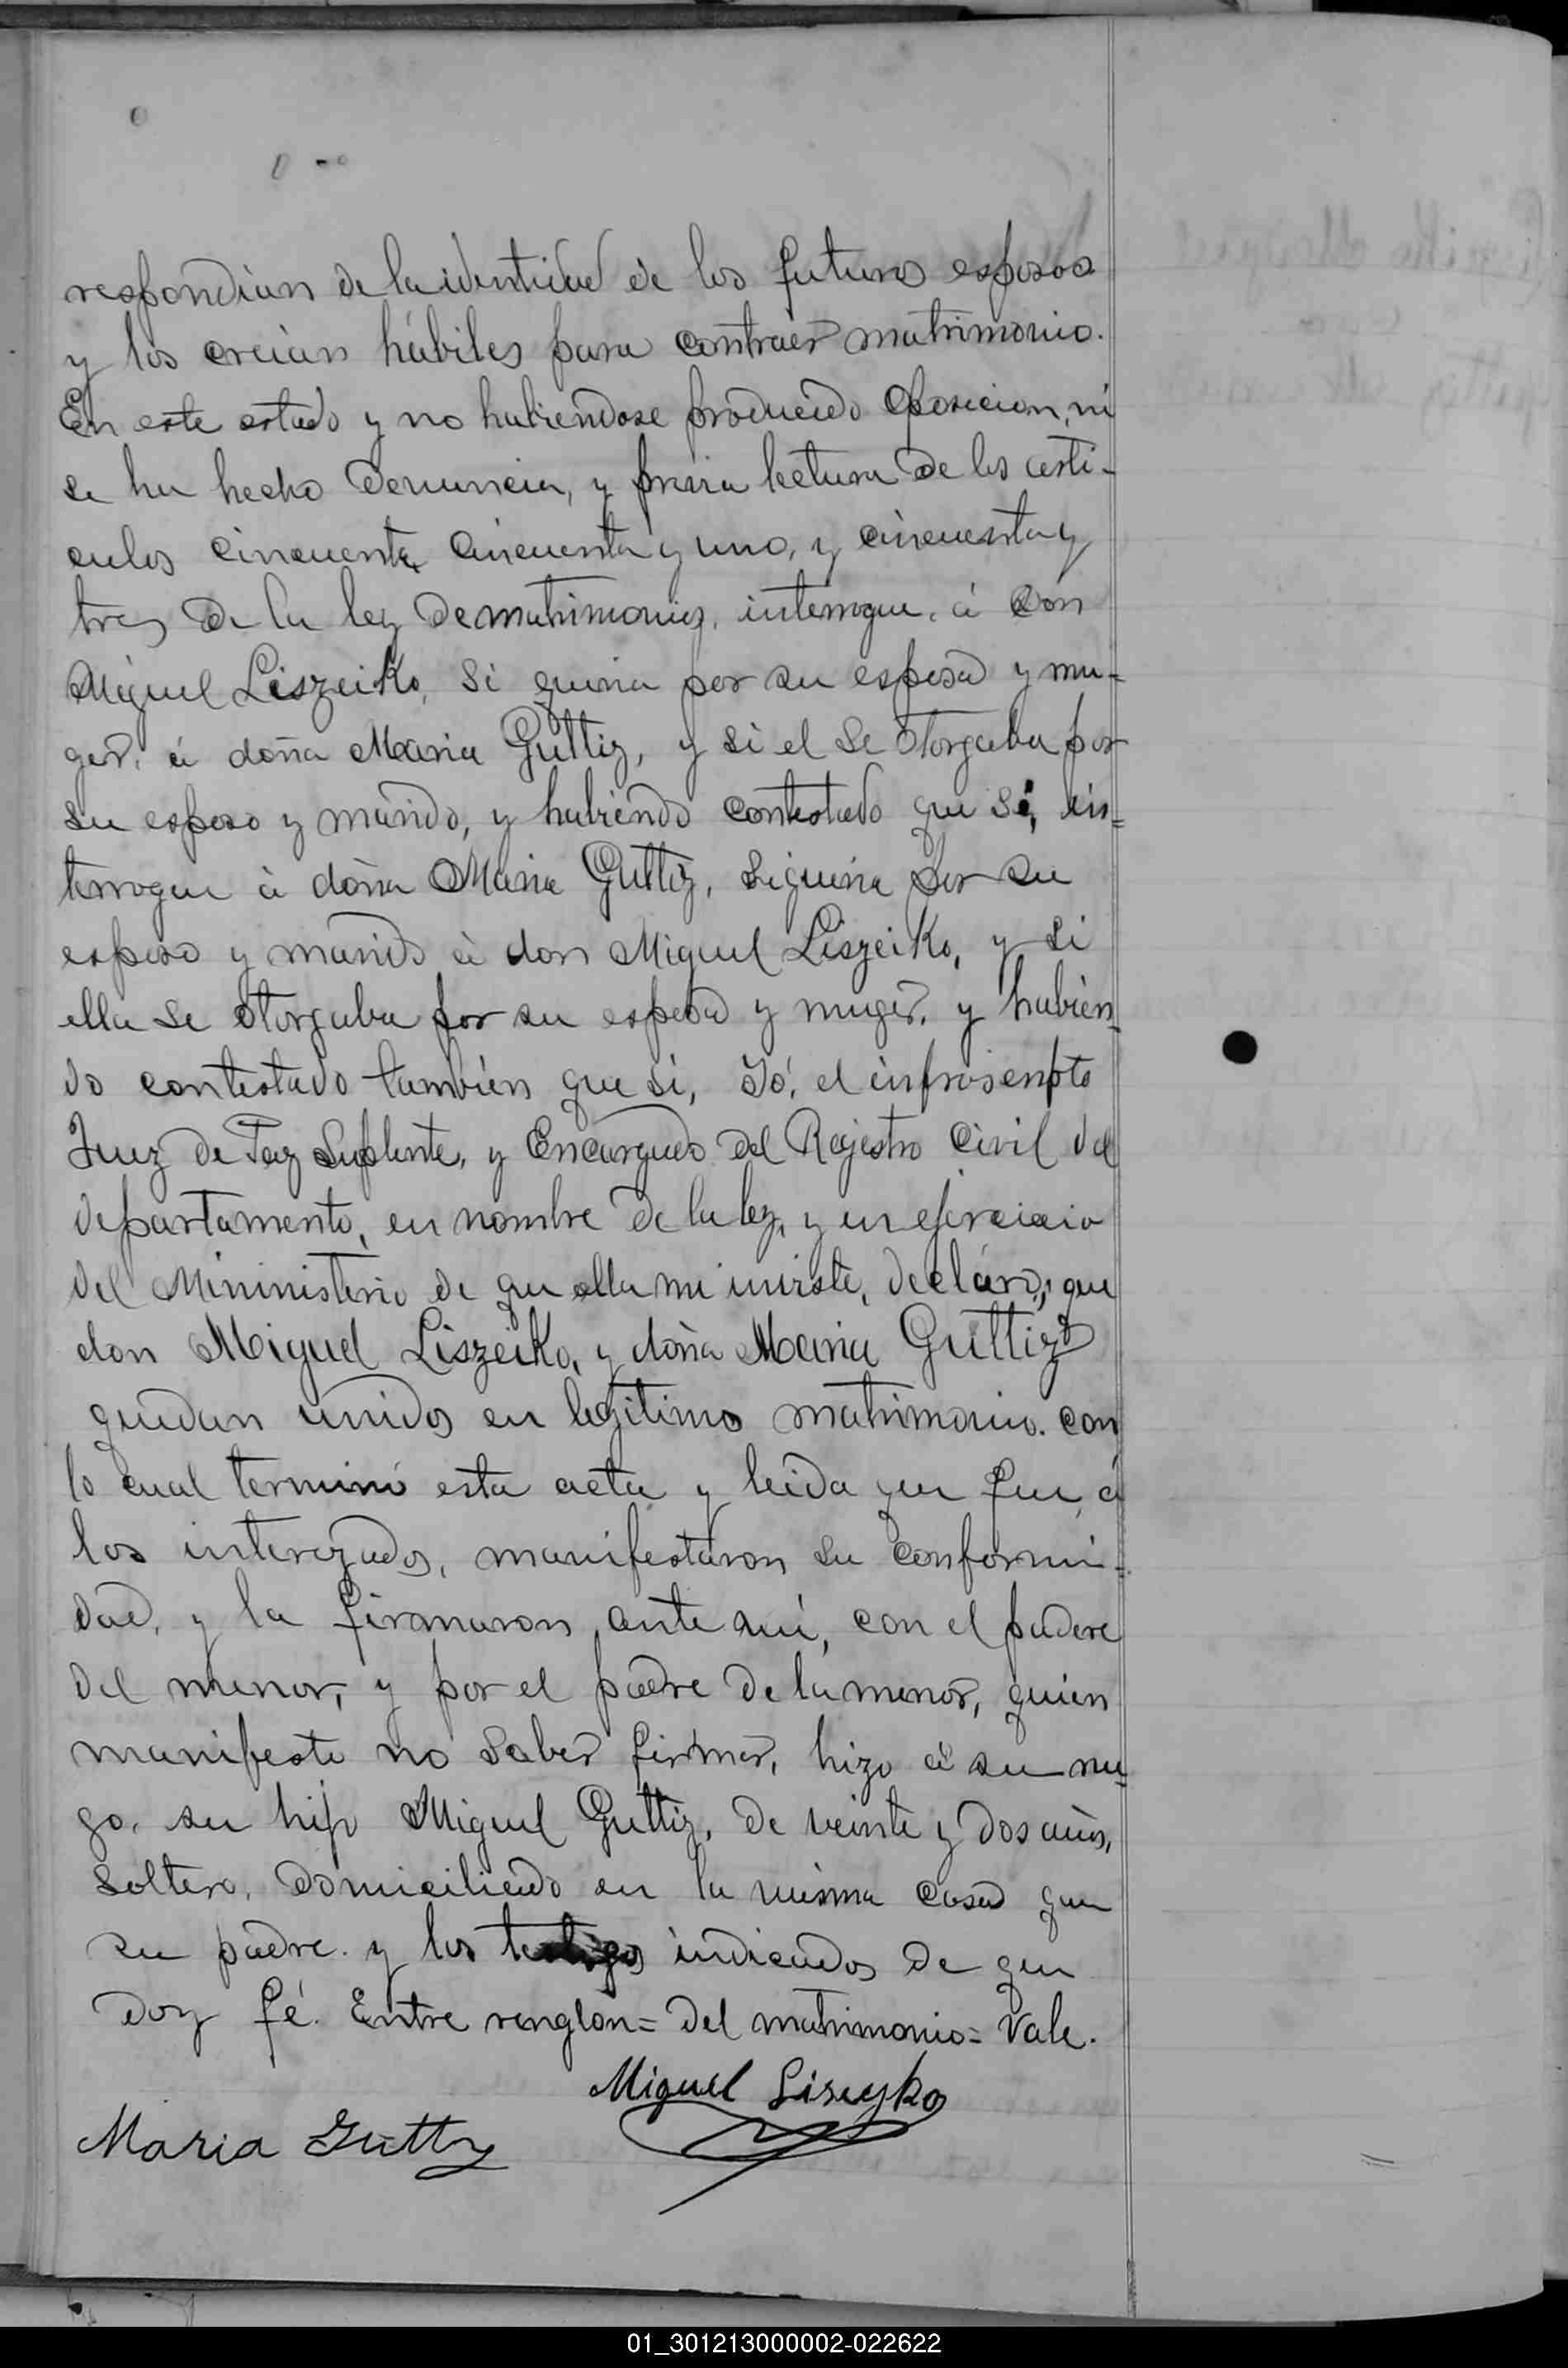 respondian de la identidad de los futuros esposos
y los creian hábiles para contraer matrimonio.
En este estado y no habiendose producido oposicion, ni
se ha hecho denuncia, y previa lectura de los arti-
culos cincuenta, cincuenta y uno, y cincuenta y
tres de la ley de matrimonio, interrogue, á don
Miguel Liszeiko, si queria por su esposa y mu-
ger, á doña Maria Guttiz, y si el se otorgaba por
su esposo y marido, y habiendo contestado que si, in=
terrogue á doña Maria Guttiz, si queria por su
esposo y marido á don Miguel Liszeiko, y si
ella se otorgaba por su esposa y muger, y habien-
do contestado tambien que si, Yó, el infrascripto
Juez de Paz Suplente, y Encargado del Rejistro Civil del
departamento, en nombre de la ley, y en ejercicio
del Mininisterio de que ella me inviste, declaro, que
don Miguel Liszeiko, y doña Maria Guttiz
quedan unidos en legitimo matrimonio. con
lo cual terminó esta acta y leida que fue, á
los interezados, manifestaron su conformi-
dad, y la firmaron, ante mi, con el padre
del menor, y por el padre de la menor, quien
manifesto no saber firmar, hizo á su rue=
go, su hijo Miguel Guttiz, de veinte y dos años,
soltero, domiciliado en la misma casa que
su padre. y los testigos indicados de que
doy fé. Entre renglon= del matrimonio= Vale.
Miguel Liseyko
Maria Gutty
01_301213000002-022622